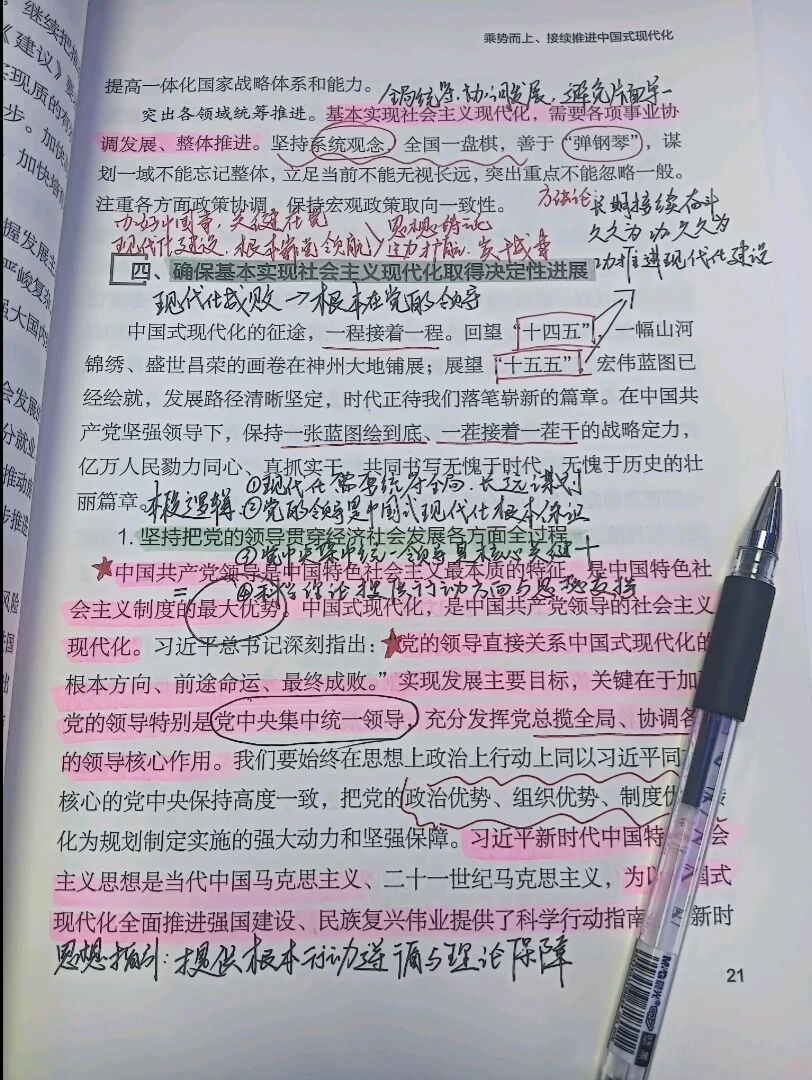 乘势而上、接续推进中国式现代化
继续把推
《建议》
步。加快
提高一体化国家战略体系和能力。
全局统筹、协调发展、避免片面单一
突出各领域统筹推进。基本实现社会主义现代化，需要各项事业协
调发展、整体推进。坚持系统观念，全国一盘棋，善于“弹钢琴”，谋
划一域不能忘记整体，立足当前不能无视长远，突出重点不能忽略一般。
注重各方面政策协调，保持宏观政策取向一致性。
方法论：
长期接续奋斗
久久为功 久久为
功推进现代化建设
办好中国事，关键在党
现代化建设，根本靠党领航
思想铸记
四、确保基本实现社会主义现代化取得决定性进展
现代化成败→根本在党的领导
中国式现代化的征途，一程接着一程。回望“十四五”，一幅山河
锦绣、盛世昌荣的画卷在神州大地铺展；展望“十五五”，宏伟蓝图已
经绘就，发展路径清晰坚定，时代正待我们落笔崭新的篇章。在中国共
产党坚强领导下，保持一张蓝图绘到底、一茬接着一茬干的战略定力，
亿万人民勠力同心、真抓实干，共同书写无愧于时代、无愧于历史的壮
丽篇章。
核心逻辑：①现代化需要统筹全局、长远谋划
②党的领导是中国式现代化根本保证
1. 坚持把党的领导贯穿经济社会发展各方面全过程
③党中央集中统一领导具核心关键
中国共产党领导是中国特色社会主义最本质的特征，是中国特色社
④科学理论提供行动方向与思想支撑
会主义制度的最大优势。中国式现代化，是中国共产党领导的社会主义
现代化。习近平总书记深刻指出：“党的领导直接关系中国式现代化的
根本方向、前途命运、最终成败。”实现发展主要目标，关键在于加
党的领导特别是党中央集中统一领导，充分发挥党总揽全局、协调各
的领导核心作用。我们要始终在思想上政治上行动上同以习近平同
核心的党中央保持高度一致，把党的政治优势、组织优势、制度优
化为规划制定实施的强大动力和坚强保障。习近平新时代中国特 会
主义思想是当代中国马克思主义、二十一世纪马克思主义，为以 国式
现代化全面推进强国建设、民族复兴伟业提供了科学行动指南 新时
思想指引：提供根本行动遵循与理论保障
21
M&G 晨光